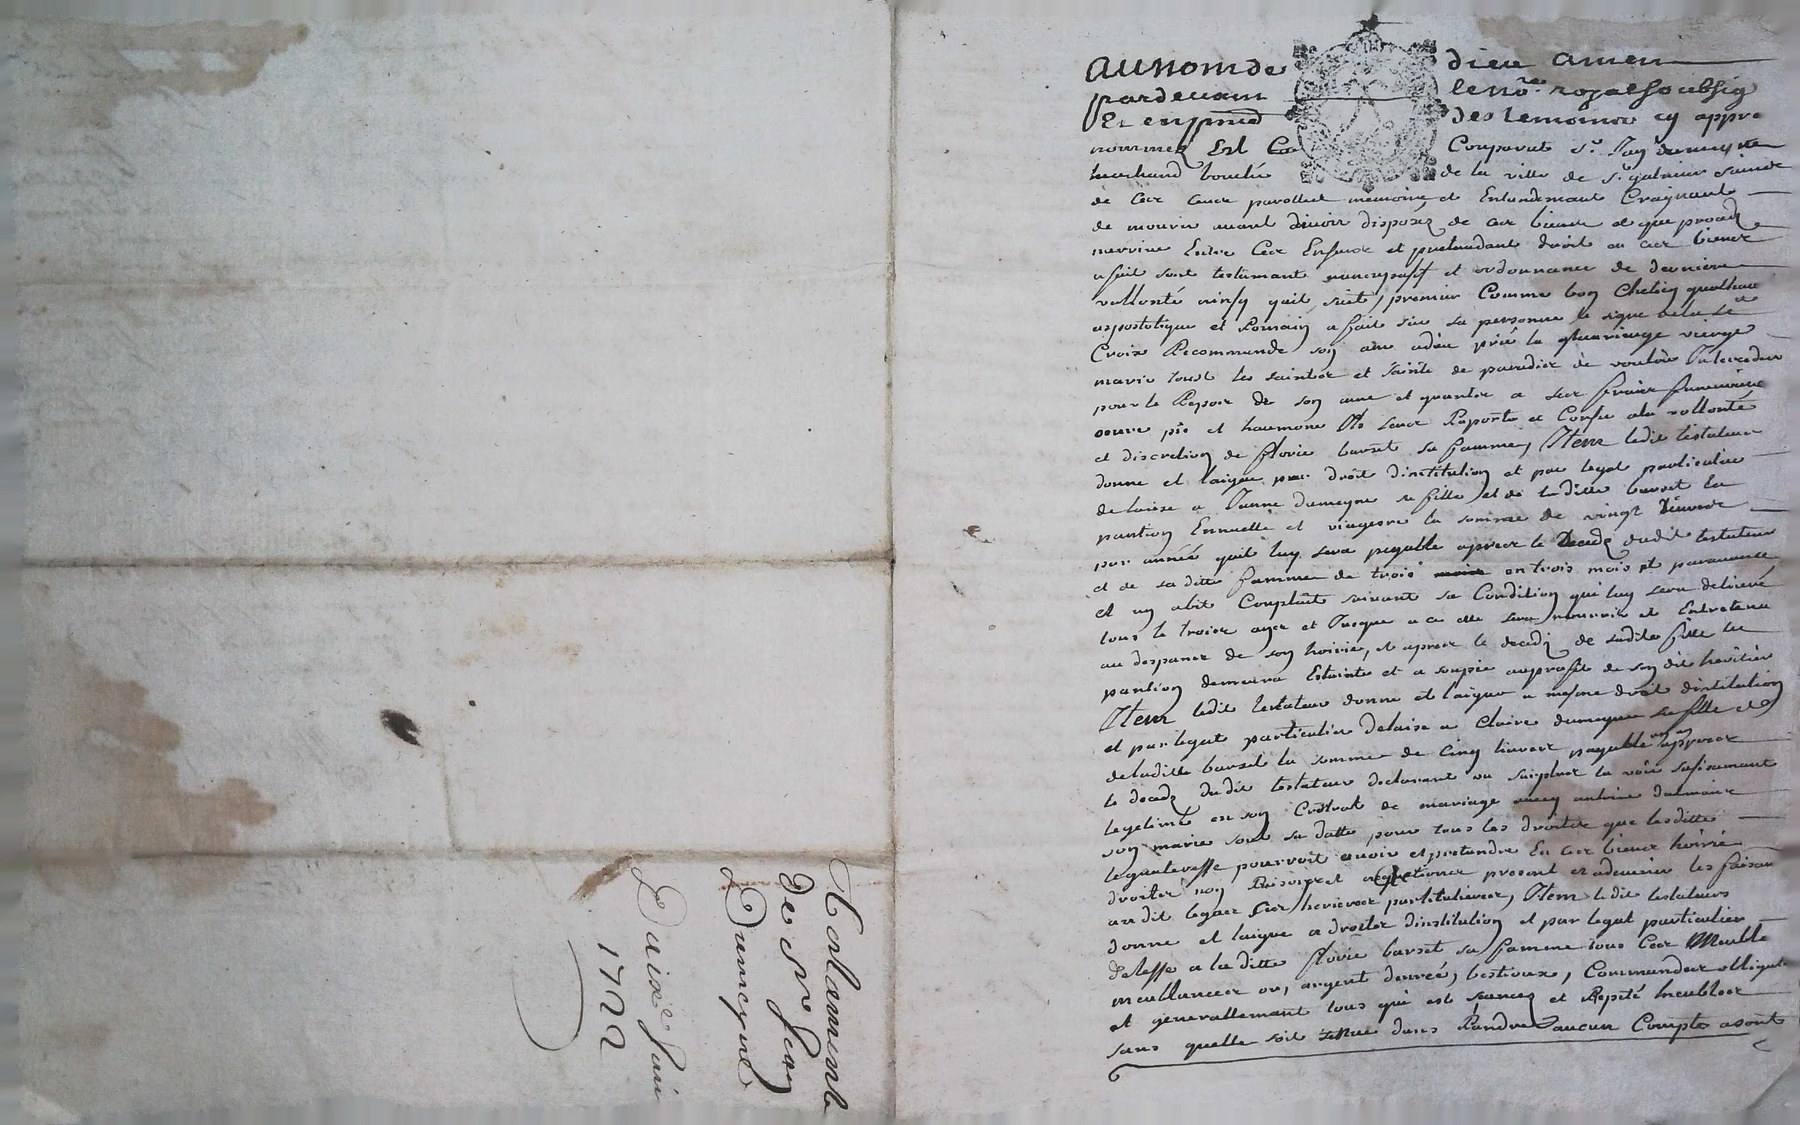 au nom de dieu amen
pardevant le no.re royal soubsig
Et en pnce des temoins cy appre
nommez Est Comparut sr. Jay dumeyne
marchand bouché de la ville de st galmier
de cer parolles memoire et Entandemant Craignant
de mourir avant davoir disposez de cer biens et que procez
Entre cer Enfans et pretandant droit au cer biens
a fait sont testamant nuncupatif et ordonnance de derniere
vollonté ainsy quil suit, premier Comme bon
apostolique et Romain a fait sur sa personne le signe de la Ste
Croix Recommande son ame a dieu prie la glurieuze vierge
marie tous les saintes et sainte de paradier de vouloir Intercedere
pour le Repos de son ame et quanter a ser fraies funeraire
oeuvre pie et haumone Ils senest Raporte et Confie ala vollonté
et discretion de florie barset sa famme, Item ledit testateur
donne et laigue par droit dinstitution et par legat particulier
delaise a Janne dumeyne sa fille et de laditte barset la
pantion Ennuelle et viagere la somme de vingt livres
par année quil luy sera payable aprer le decedz dudit testateur
et de sa ditte famme de trois en trois mois et paravance
et un abit Complait suivant sa Condition qui luy sera delivré
tous le troier ayer et Jusque a ce elle sera nourrie et Entretenu
au despance de son hoirie, et aprer le decedz de sadite fille la
pantion demeura Estainte et a soupie auprofit de son dit heritier
Item ledit testateur donne et laigue a mesme droit dinstitution
et par legat particulier delaise a Claire dumeyne sa fille et
de laditte barset la somme de cinq livres payable aprer
le decedz dudit testateur declarant au surplus la voir sufisamant
legetimé en son Contrat de mariage avecq antoine
son marie sout sa datte pour tous les droiter que lesditte
legataresse pourroit avoir et pretandre En cer biens hoirie
droiter non Raisons et actionner present et advenir les faisan
au dit legaer ser heritieres particulieres, Item ledit testateurs
donne et laigue a droiter dinstitution et par legat particulier
delesse a la ditte florie barset sa famme tous cer Meuble
meublancer or, argent danreé, bestiaux, Commander obligat
et generallemant tous qui est
sans quelle soit tenue dans Randre aucun Compte a sont
testament
de sr Jean
Dumeyne
Du ixe Juin
1722